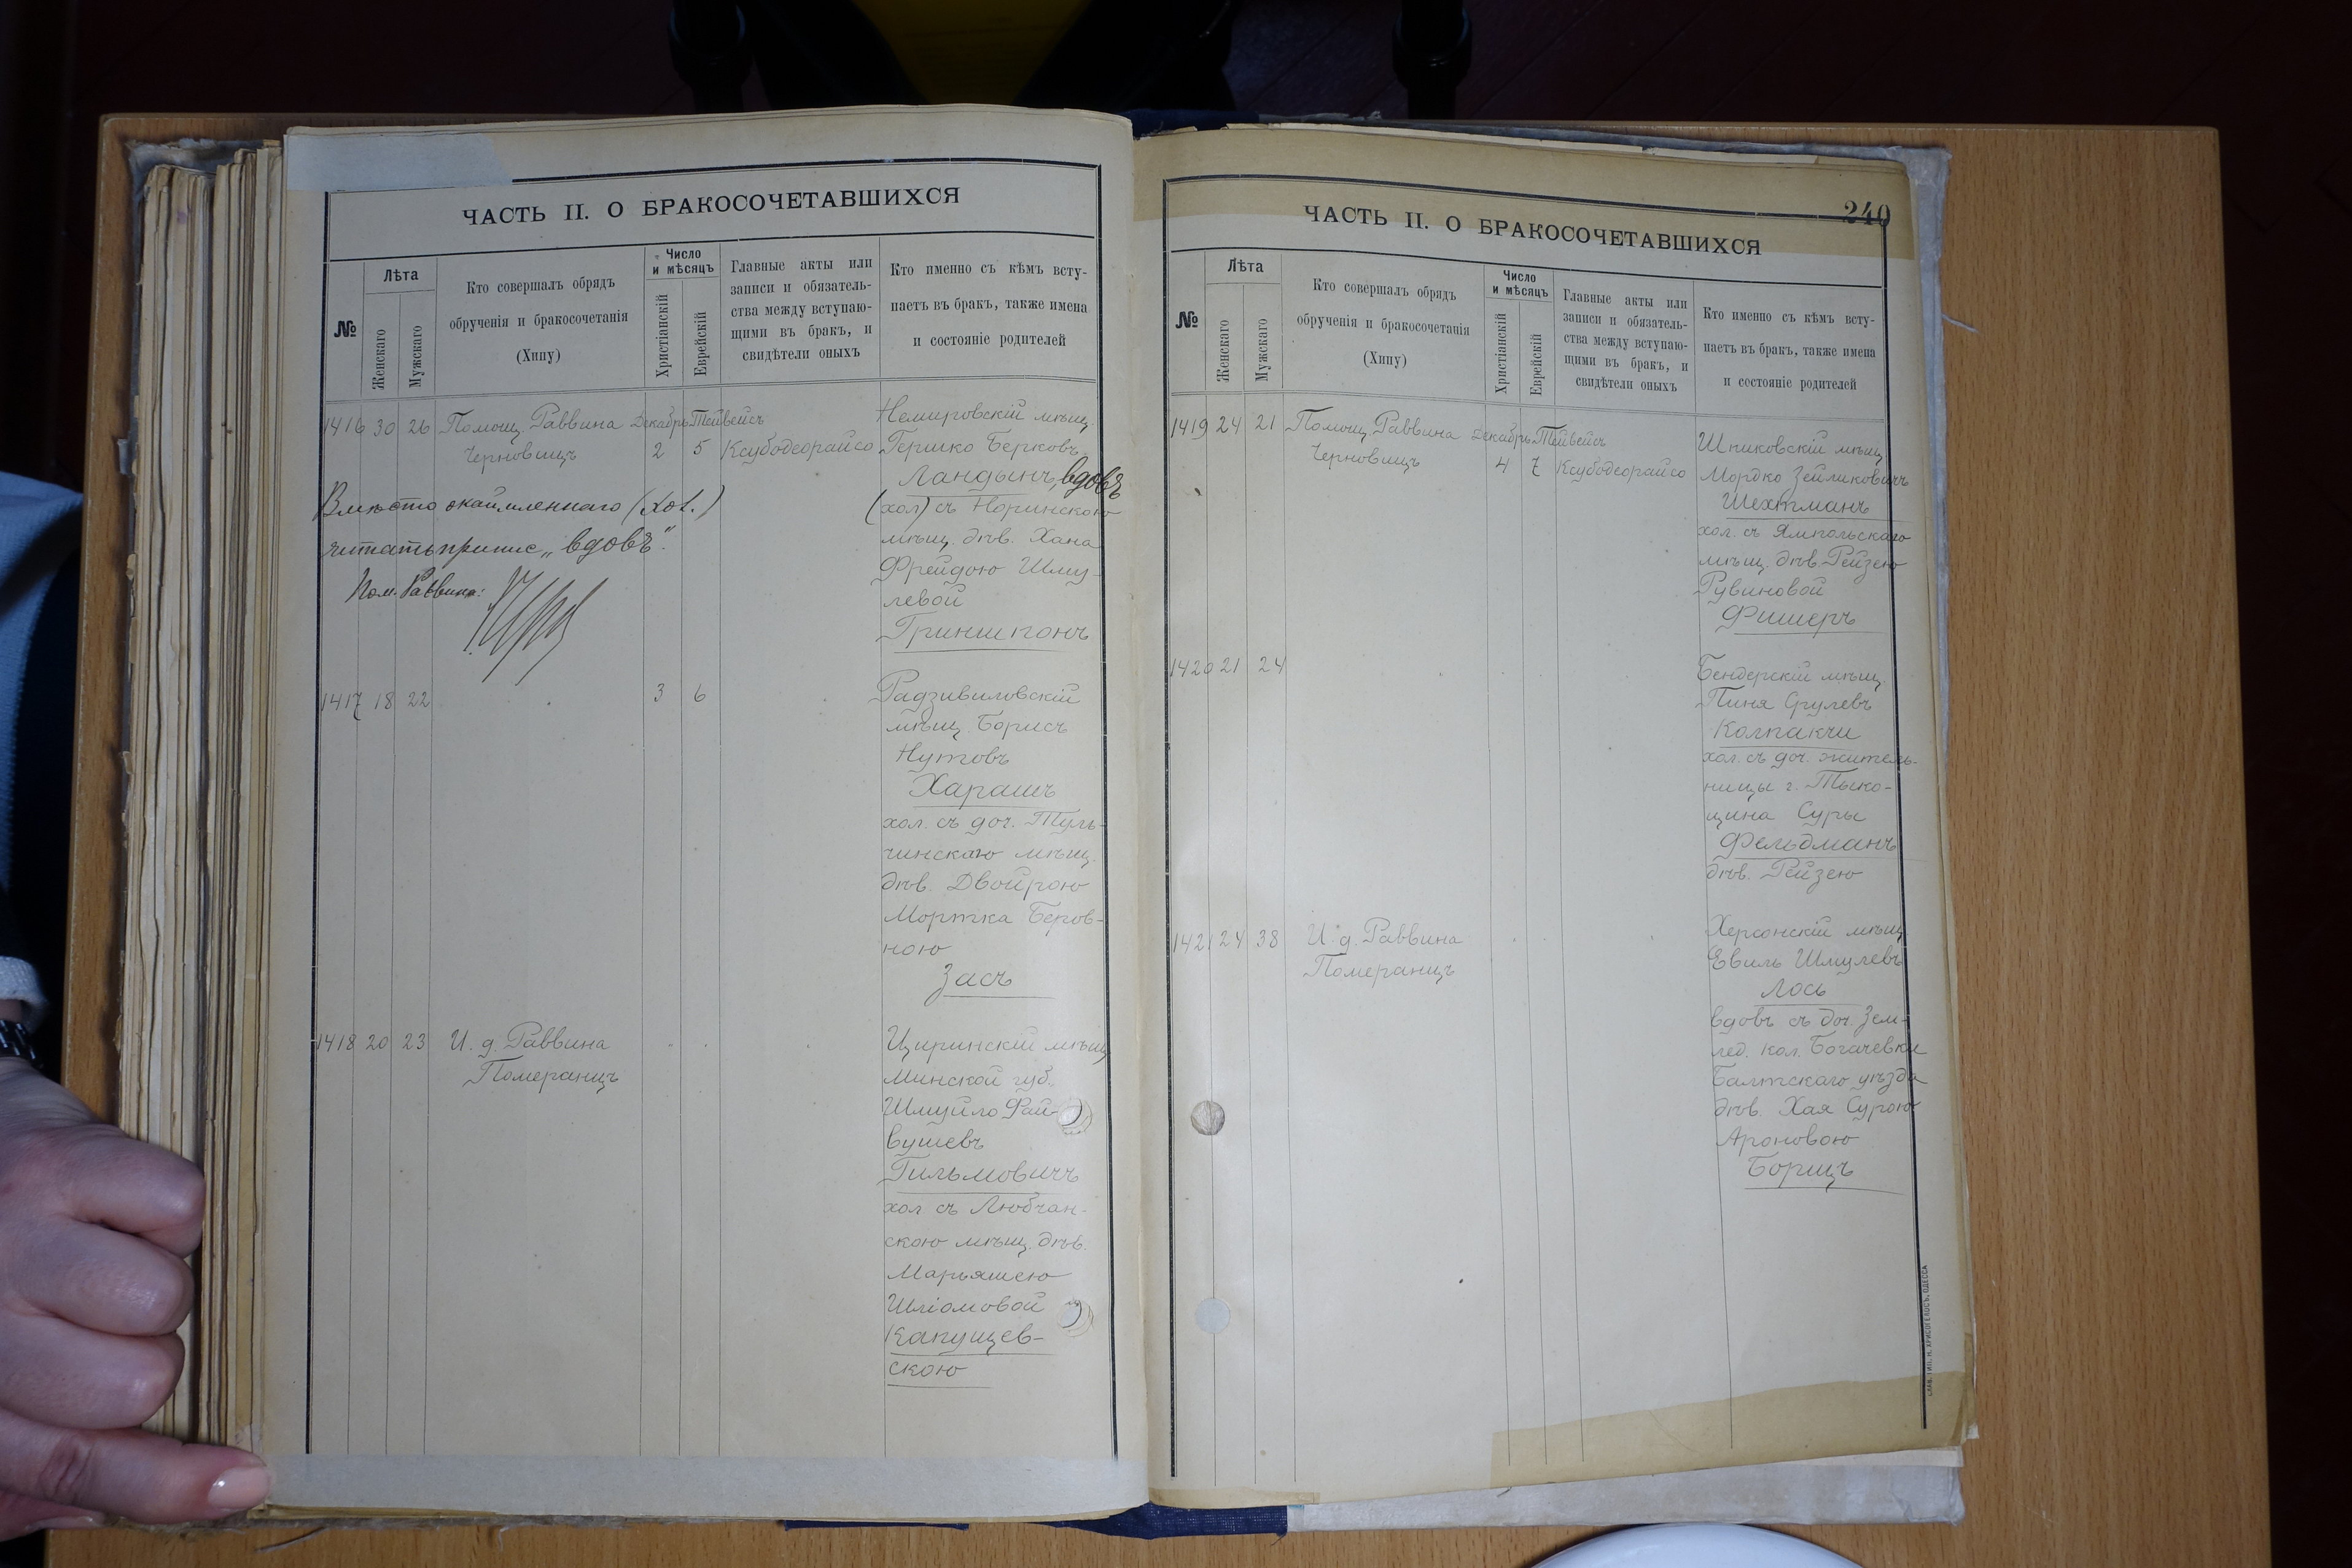 ЧАСТЬ II. О БРАКОСОЧЕТАВШИХСЯ
№
Лѣта
Женскаго
Мужскаго
Кто совершалъ обрядъ
обрученія и бракосочетанія
(Хипу)
Число
и мѣсяцъ
Христіанскій
Еврейскій
Главные акты или
записи и обязатель-
ства между вступаю-
щими въ бракъ, и
свидѣтели оныхъ
Кто именно съ кѣмъ всту-
паетъ въ бракъ, также имена
и состояніе родителей
1416 30 26 Помощ. Раввина Декабрь Тейвейсъ
Черновицъ 2 5 Ксубодеорайсо
Немировскій мѣщ.
Гершко Берковъ
Ландынъ, вдовъ
(хол) съ Норинскою
мѣщ. дѣв. Хана
Фрейдою Шму-
левой
Гриншпонъ
Вмѣсто окаймленнаго (хол.)
читать припис „вдовъ".
Пом. Раввина:
1417 18 22 3 6
Радзивиловскій
мѣщ. Борисъ
Нутовъ
Харашъ
хол. съ доч. Туль-
чинскаго мѣщ.
дѣв. Двойрою
Мортка Беров-
ною
Засъ
1418 20 23 И. д. Раввина
Померанцъ
Циринскій мѣщ
Минской губ.
Шмуйло Фай-
вушевъ
Гильмовичъ
хол съ Любчан-
скою мѣщ. дѣв.
Марьяшею
Шліомовой
Капущев-
скою
240
ЧАСТЬ II. О БРАКОСОЧЕТАВШИХСЯ
№
Лѣта
Женскаго
Мужскаго
Кто совершалъ обрядъ
обрученія и бракосочетанія
(Хипу)
Число
и мѣсяцъ
Христіанскій
Еврейскій
Главные акты или
записи и обязатель-
ства между вступаю-
щими въ бракъ, и
свидѣтели оныхъ
Кто именно съ кѣмъ всту-
паетъ въ бракъ, также имена
и состояніе родителей
1419 24 21 Помощ. Раввина Декабрь Тейвейсъ
Черновицъ 4 7 Ксубодеорайсо
Шпиковскій мѣщ
Мордко Зейликовичъ
Шехтманъ
хол. съ Ямпольскаго
мѣщ. дѣв. Рейзею
Рувиновой
Фишеръ
1420 21 24
Бендерскій мѣщ.
Пиня Срулевъ
Колпакчи
хол. съ доч. житель-
ницы г. Тыко-
цина Суры
Фельдманъ
дѣв. Рейзею
1421 24 38 И. д. Раввина
Померанцъ
Херсонскій мѣщ
Евиль Шмулевъ
Лось
вдовъ съ доч. Зем-
лед. кол. Богачевки
Балтскаго уѣзда
дѣв. Хая Сурою
Ароновою
Борщъ
СЛАВ. ТИП. Н. ХРИСОГЕЛОСЪ, ОДЕССА